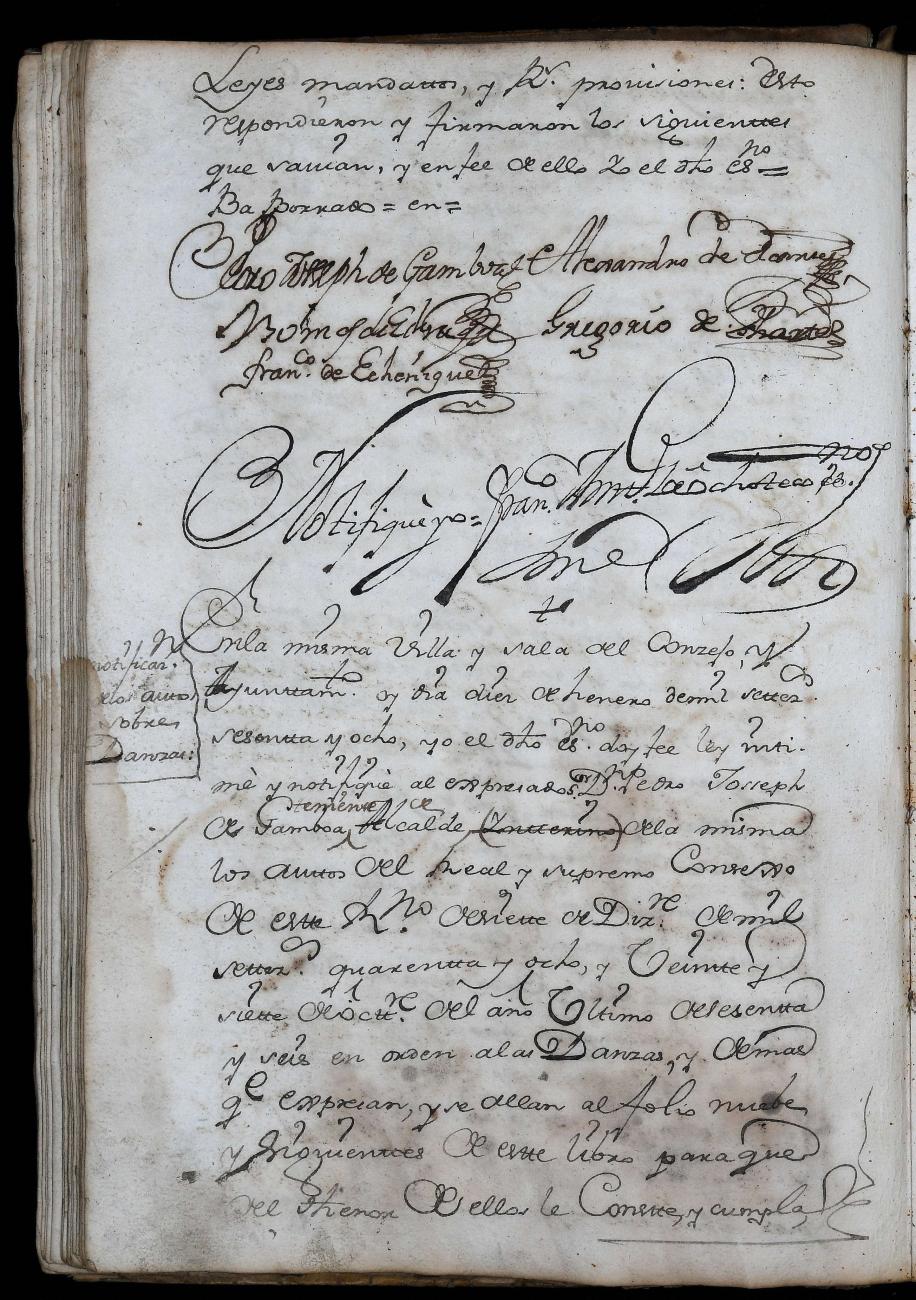 Leyes mandattos, y Rs. provisiones: Esto
respondieron y firmaron los siguienttes
que savian, y en fee de ello Yo el dho esno =
Ba borrado = en =
Pedro Joseph de Gamboa Alexandro de
Gregorio de
Franco. de Echenique
Nottifiquè yo = Franco. Antto. de Ochoteco esno.
En la misma Villa y sala del Conzejo, y
Ayunttamto. oy dia diez de henero de mil settezs.
sesentta y ocho, yo el dho esno. doy fee ley intti-
mè y nottifiquè al expresado Sr. Dn. Pedro Josseph
de Gamboa, theniente Alcalde (Yntterino) de la misma
los auttos del Real y supremo Consexo
de estte Rno. de siette de Dizre. de mil
settezs. quarentta y ocho, y Veintte y
siette de Octtre. del año Ultimo de sesentta
y seis en orden a las Danzas, y demas
qe. expresan, y se allan al folio nuebe
y siguienttes de estte libro para que
del thenor de ellos le Constte, y cumpla
nottificar.
de los auttos
sobre
Danzas: